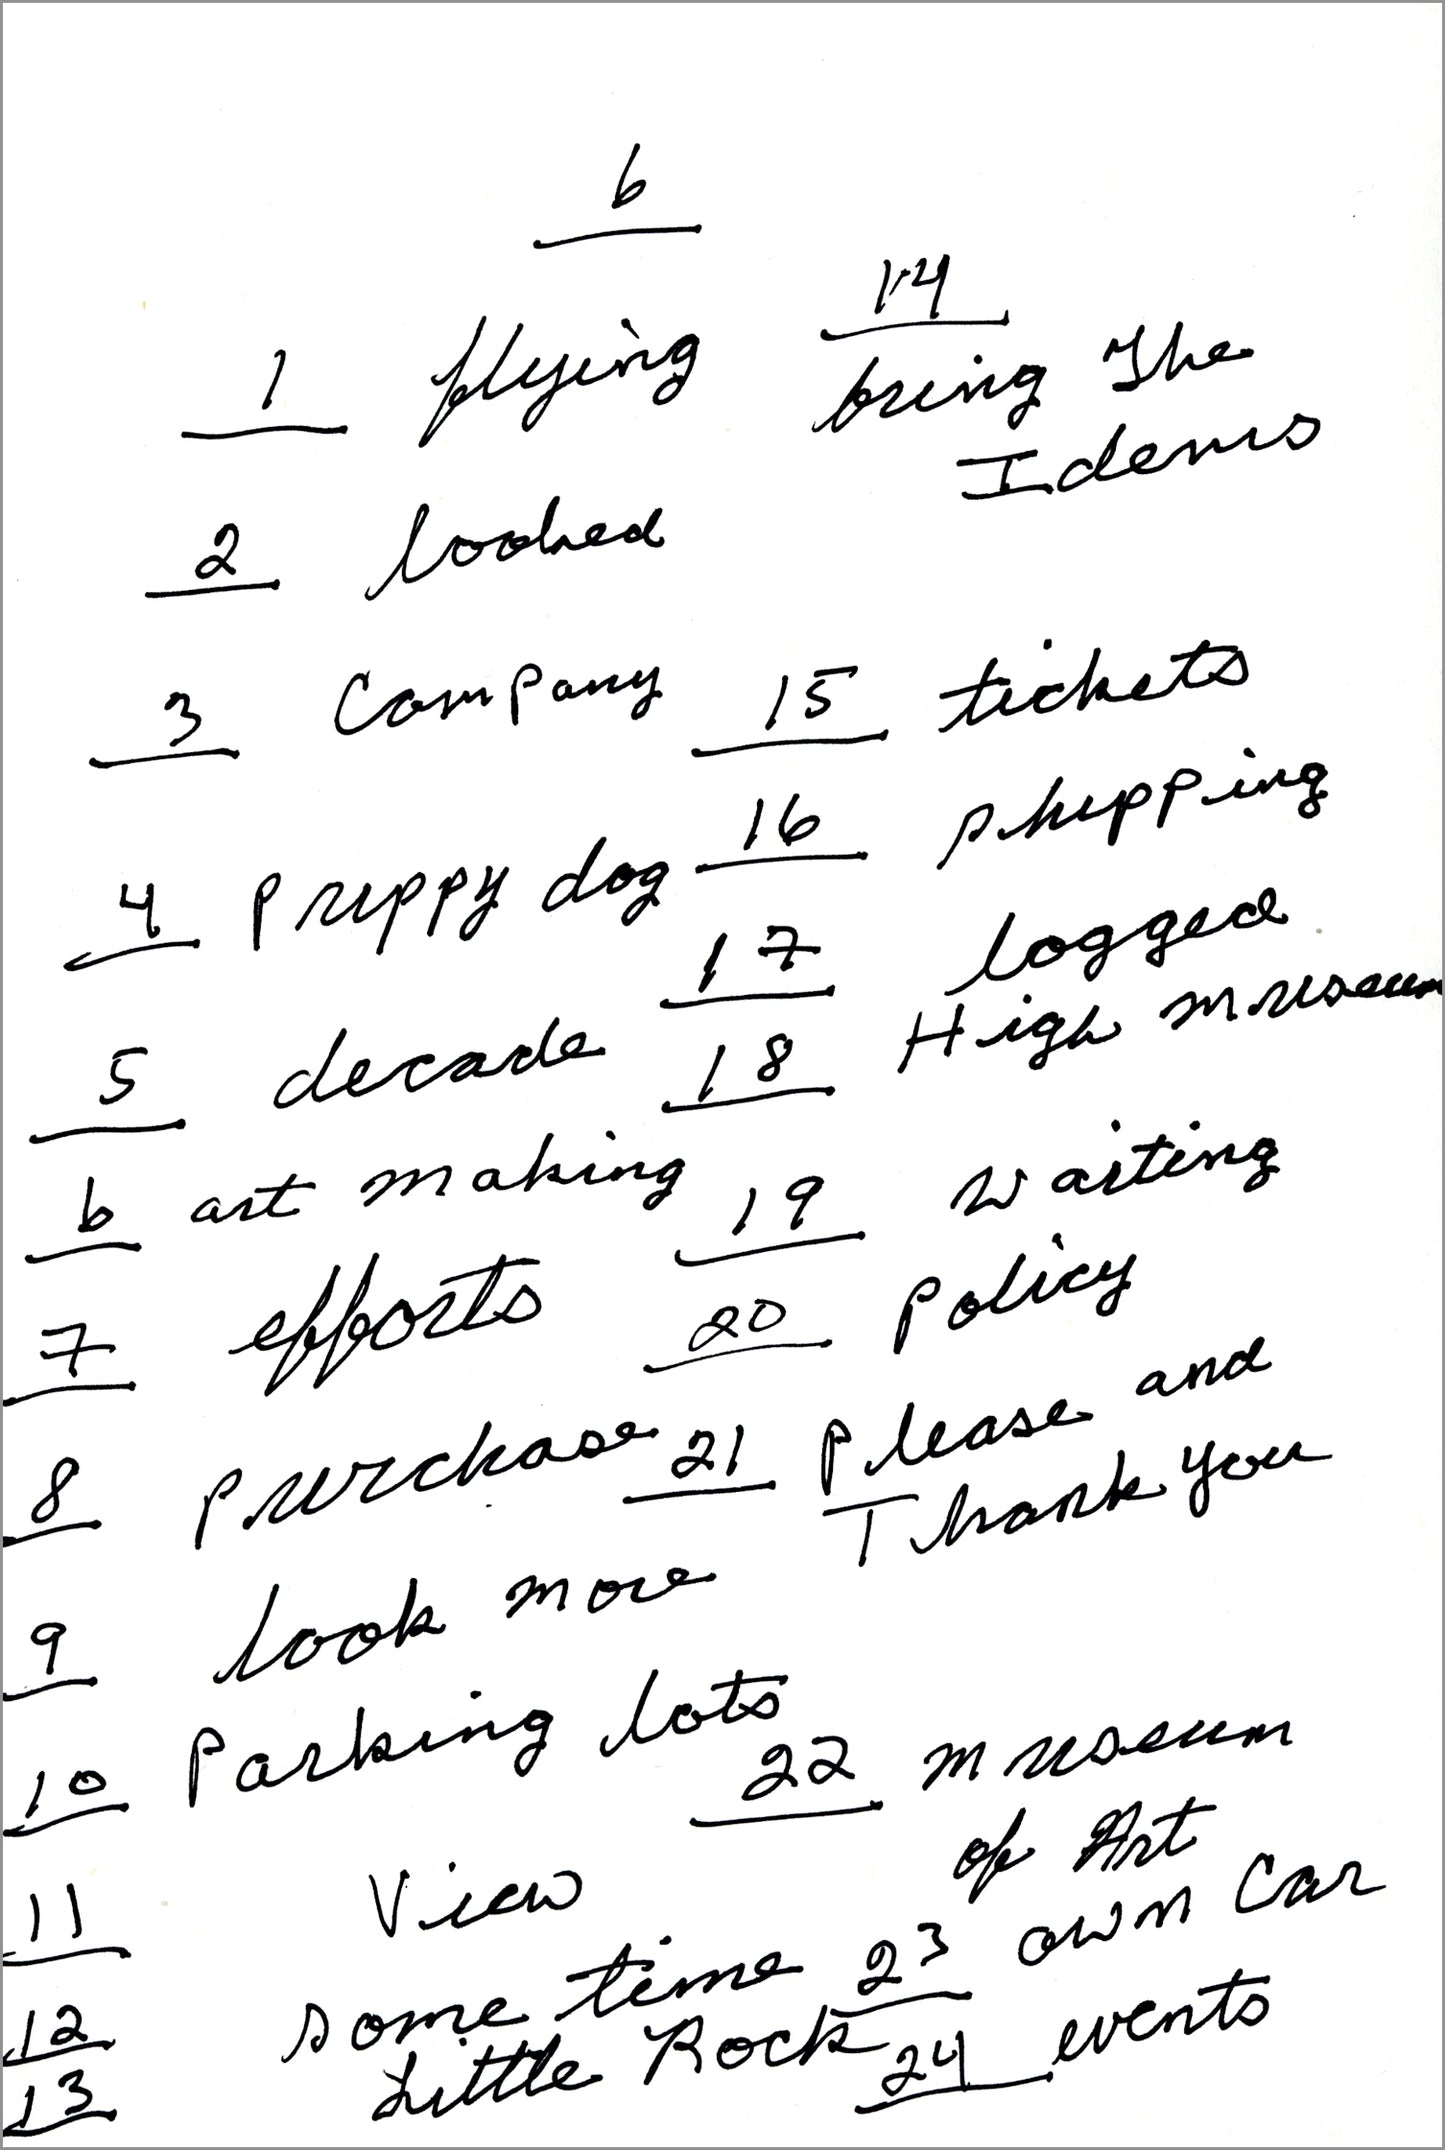 6
1 flying
2 looked
3 Company
4 puppy dog
5 decade
6 art making
7 efforts
8 purchase
9 look more
10 Parking lots
11 View
12 some time
13 Little Rock
14
bring The
Idems
15 tickets
16 shipping
17 logged
18 High museum
19 Waiting
20 Policy
21 Please and
Thank you
22 museum
of Art
23 own Car
24 events